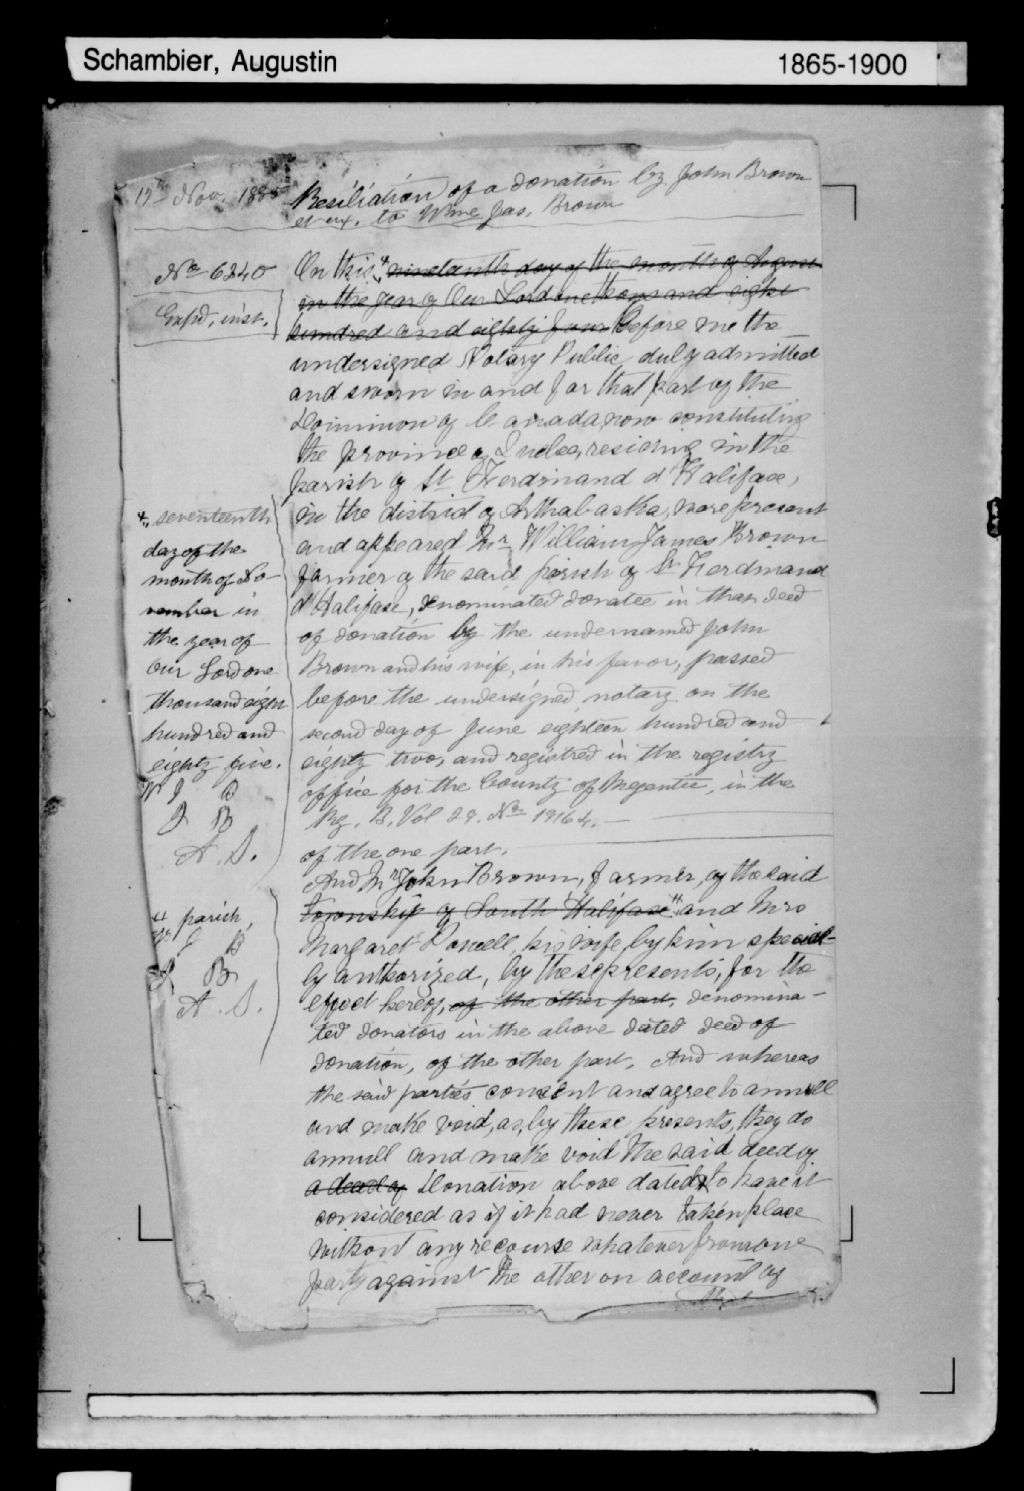 Schambier, Augustin 1865-1900
17th Nov. 1885
Resiliation of a donation by John Brown
et ux. to Wme Jas. Brown
No 6240
Exp'd, inst.
On this + nineteenth day of the month of August
in the year of Our Lord one thousand eight
hundred and eighty four before me the
undersigned Notary Public, duly admitted
and sworn in and for that part of the
Dominion of Canada now constituting
the province of Quebec, residing in the
parish of St Ferdinand d'Halifax,
in the district of Arthabaska, were present
and appeared Mr William James Brown
farmer of the said parish of St Ferdinand
d'Halifax, denominated donatee in that deed
of donation by the undernamed John
Brown and his wife, in his favor, passed
before the undersigned notary on the
second day of June eighteen hundred and
eighty two, and registred in the registry
office for the County of Megantic, in the
Rg. B. Vol 29. No 19164. —
of the one part.
And Mr John Brown, farmer, of the said
township of South Halifax ++ and Mrs
Margaret Powell his wife, by him special-
ly authorized, by these presents, for the
effect hereof, of the other part, denomina-
ted donators in the above dated deed of
donation, of the other part. And whereas
the said parties consent and agree to annull
and make void, as, by these presents, they do
annull and make void the said deed of
a deed of Donation above dated to have it
considered as if it had never taken place
without any recourse whatever from one
party against the other on account of
+ seventeenth
day of the
month of No-
vember in
the year of
Our Lord one
thousand eight
hundred and
eighty five.
W J B
J B
A. S.
++ parish,
J B
J B
A. S.